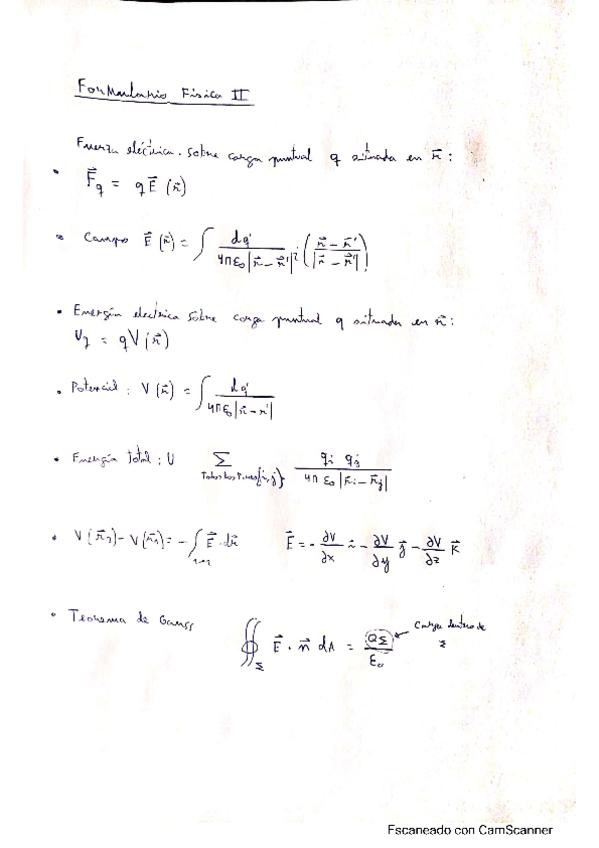 Formulario Física II
Fuerza eléctrica. Sobre carga puntual q situada en r⃗ :
• F⃗q = q E⃗ (r⃗)
• Campo E⃗ (r⃗) = ∫ dq' / 4πε₀|r⃗ - r⃗'|² ( r⃗ - r⃗' / |r⃗ - r⃗'| )
• Energía electrica sobre carga puntual q situada en r⃗ :
Uq = qV(r⃗)
• Potencial : V(r⃗) = ∫ dq' / 4πε₀|r⃗ - r⃗'|
• Energía total : U ∑ Todos los Pares{i,j} qi qj / 4πε₀|r⃗i - r⃗j|
• V(r⃗₂) - V(r⃗₁) = - ∫₁→₂ E⃗ · dr⃗ E⃗ = - ∂V/∂x i⃗ - ∂V/∂y j⃗ - ∂V/∂z k⃗
• Teorema de Gauss ∯Σ E⃗ · n⃗ dA = QΣ / ε₀ ← Carga dentro de Σ
Escaneado con CamScanner